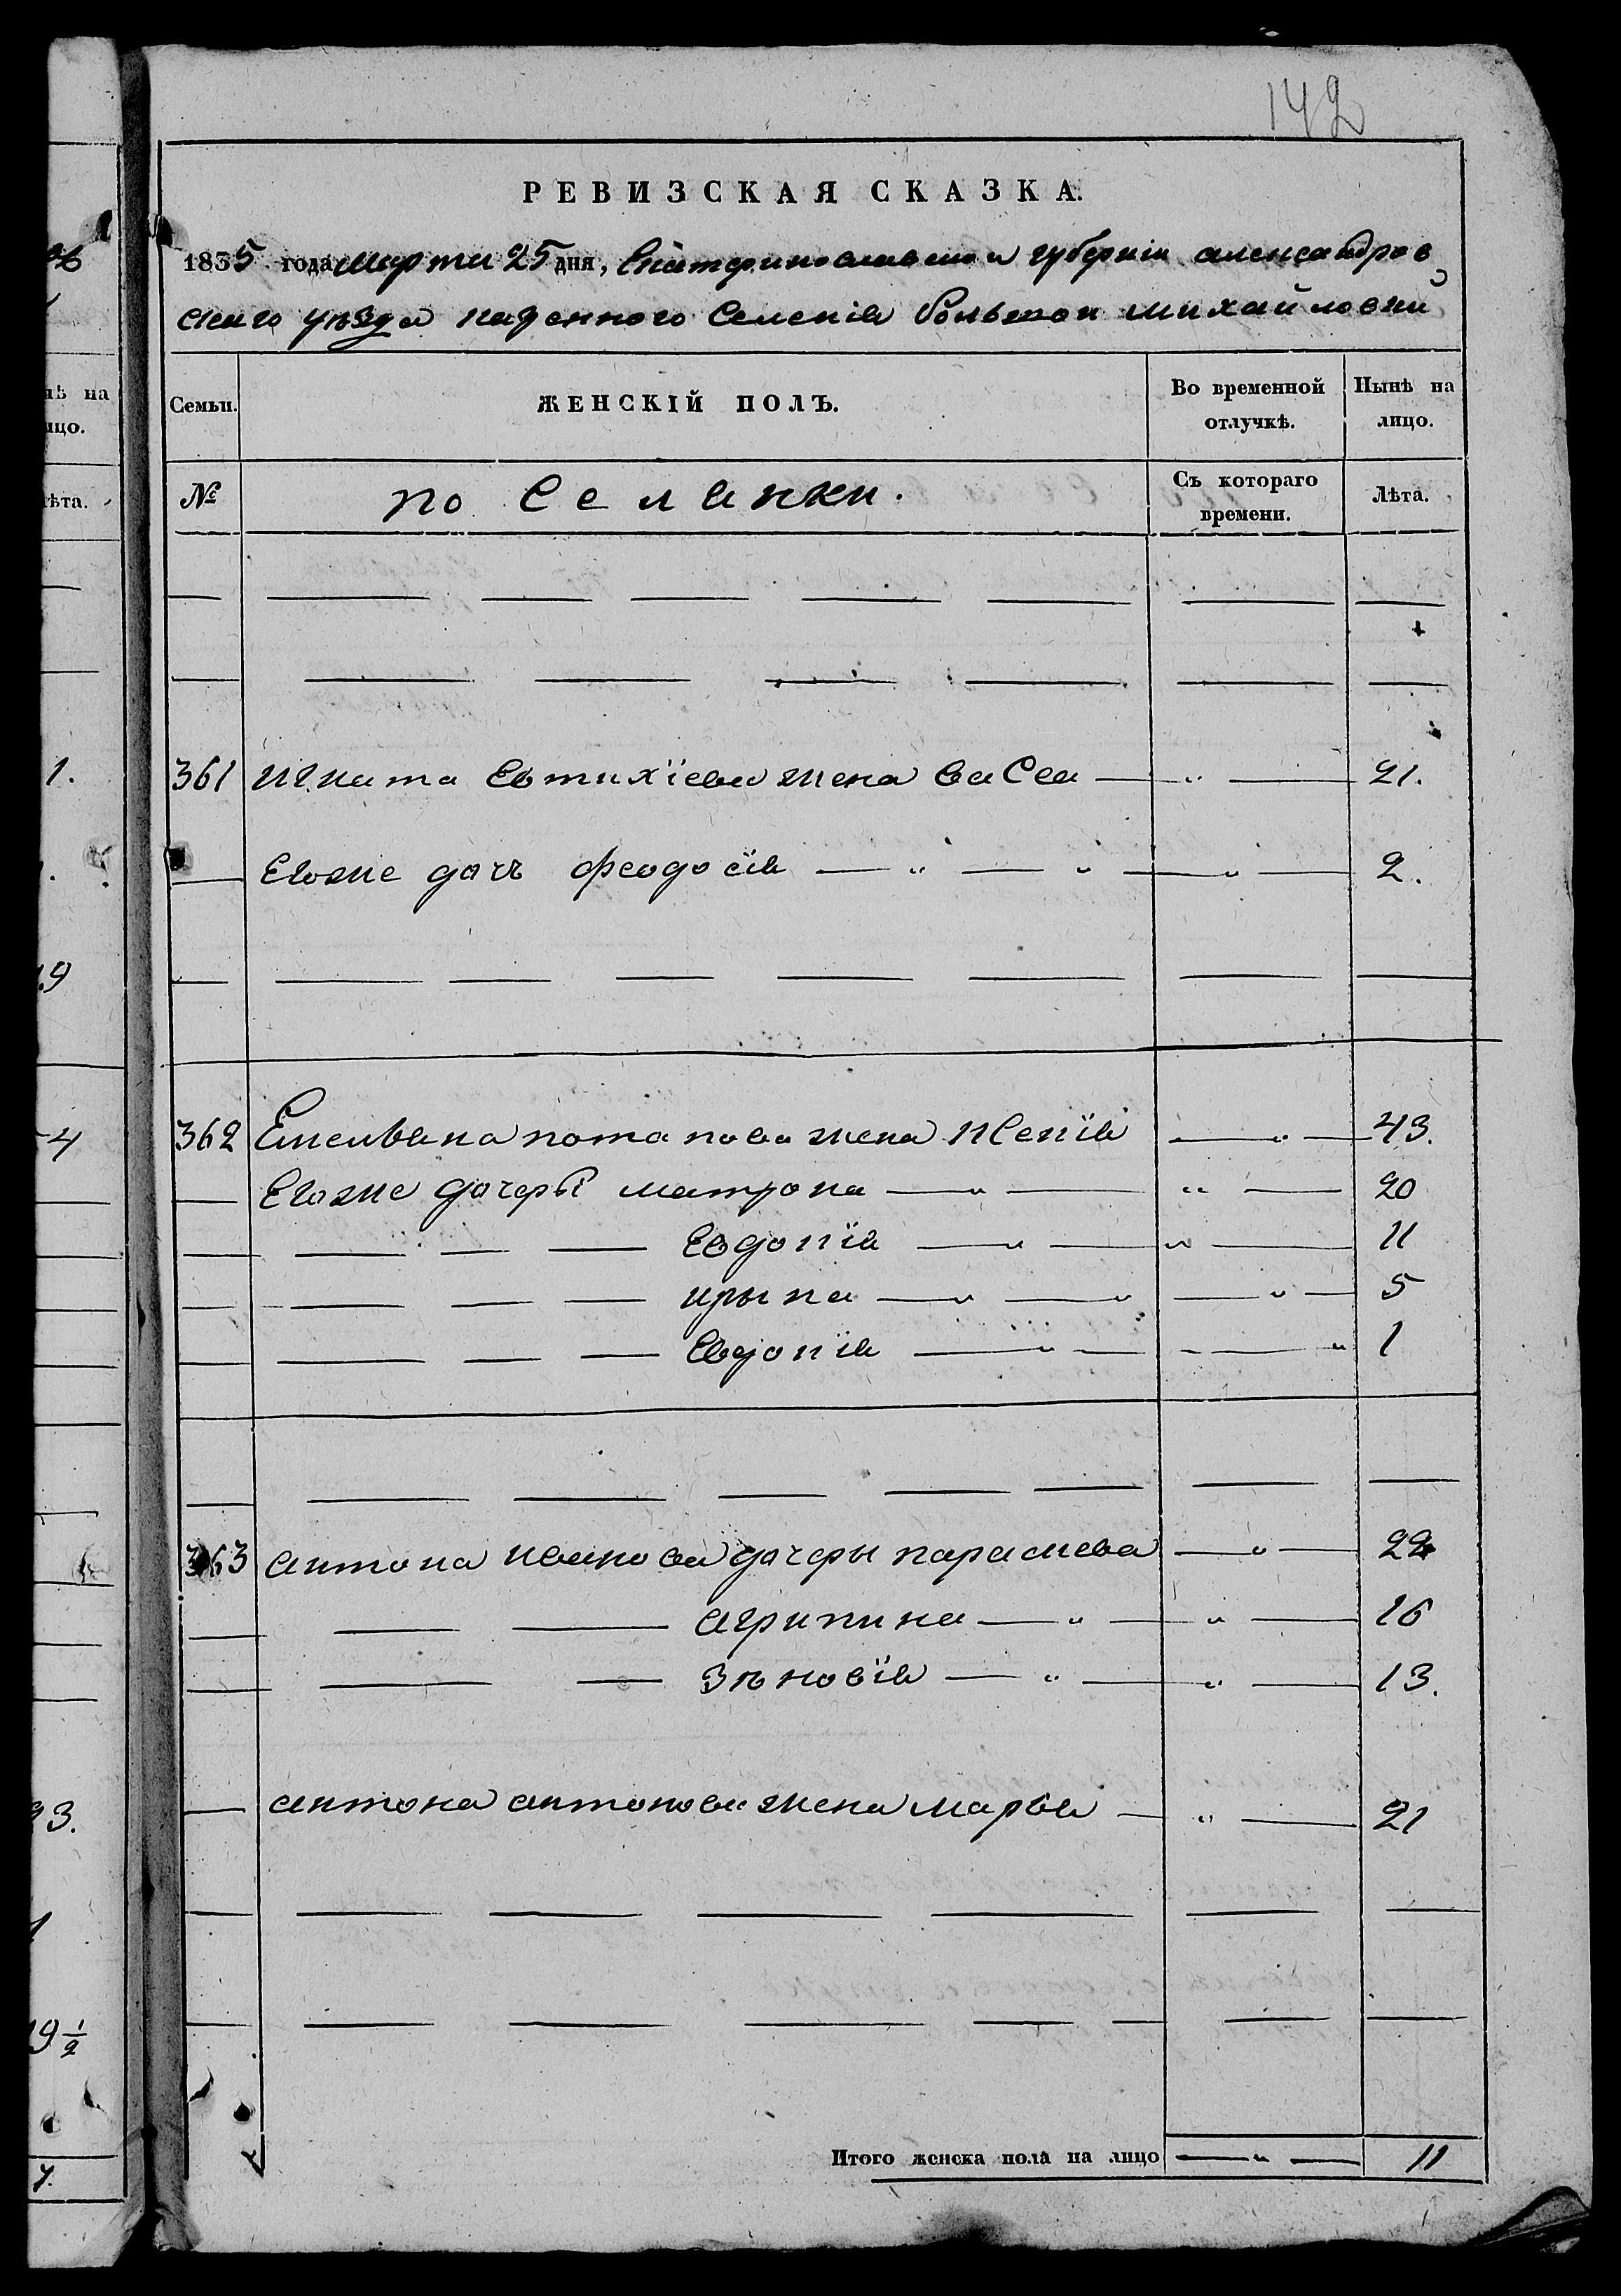 142
РЕВИЗСКАЯ СКАЗКА.
1835 года марта 25 дня, Екатеринославской губернии александров
скаго уезда казенного Селенія большои михайловки
Семьи. ЖЕНСКІЙ ПОЛЪ. Во временной отлучкѣ. Нынѣ на лицо.
№ поселянки. Съ котораго времени. Лѣта.
361 игната Евтихіева жена васса — " — 21.
Егоже дочь феодосія — " — " — " — 2.
362 Емельяна потапова жена ксенія — " — 43.
Егоже дочери матрона — " — " — 20
Евдокія — " — " — 11
ирына — " — " — " — 5
Евдокія — " — " 1
363 антона иванова дочеры параскева — " — 22
агрипина — " — " — 16
Зѣновія — " — " — 13.
антона антонова жена марья — " — 21
Итого женска пола на лицо — " — 11
нѣ на
ицо.
ѣта.
1.
.9
4
93.
1
19 1/2
7.